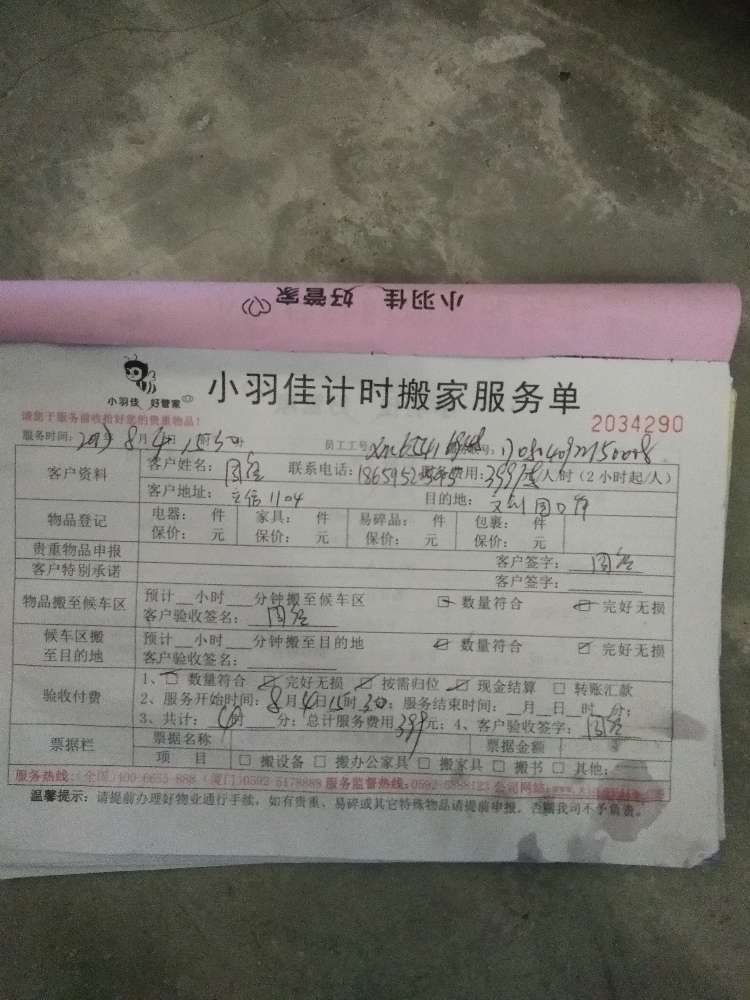 小羽佳 好管家
小羽佳 好管家
小羽佳计时搬家服务单
请您于服务前收拾好您的贵重物品!
2034290
服务时间: 年8月4日15时30分 员工工号
客户资料 客户姓名: 联系电话: 服务费用:399 元/人/时(2小时起/人)
客户地址: 1104 目的地:
物品登记 电器: 件 家具: 件 易碎品: 件 包裹: 件
保价: 元 保价: 元 保价: 元 保价: 元
贵重物品申报 客户签字:
客户特别承诺 客户签字:
物品搬至候车区 预计__小时___分钟搬至候车区 数量符合 完好无损
客户验收签名:
候车区搬至目的地 预计__小时___分钟搬至目的地 数量符合 完好无损
客户验收签名:
验收付费 1、 数量符合 完好无损 按需归位 现金结算 转账汇款
2、服务开始时间:8月4日15时30分;服务结束时间: 月 日 时 分;
3、共计: 4时 分;总计服务费用399元;4、客户验收签字:
票据栏 票据名称 票据金额
项 目 搬设备 搬办公家具 搬家具 搬书 其他:
服务热线:(全国)400-6655-888 (厦门)0592-5178888 服务监督热线: 公司网站:
温馨提示:请提前办理好物业通行手续,如有贵重、易碎或其它特殊物品请提前申报。否则我司不予负责。